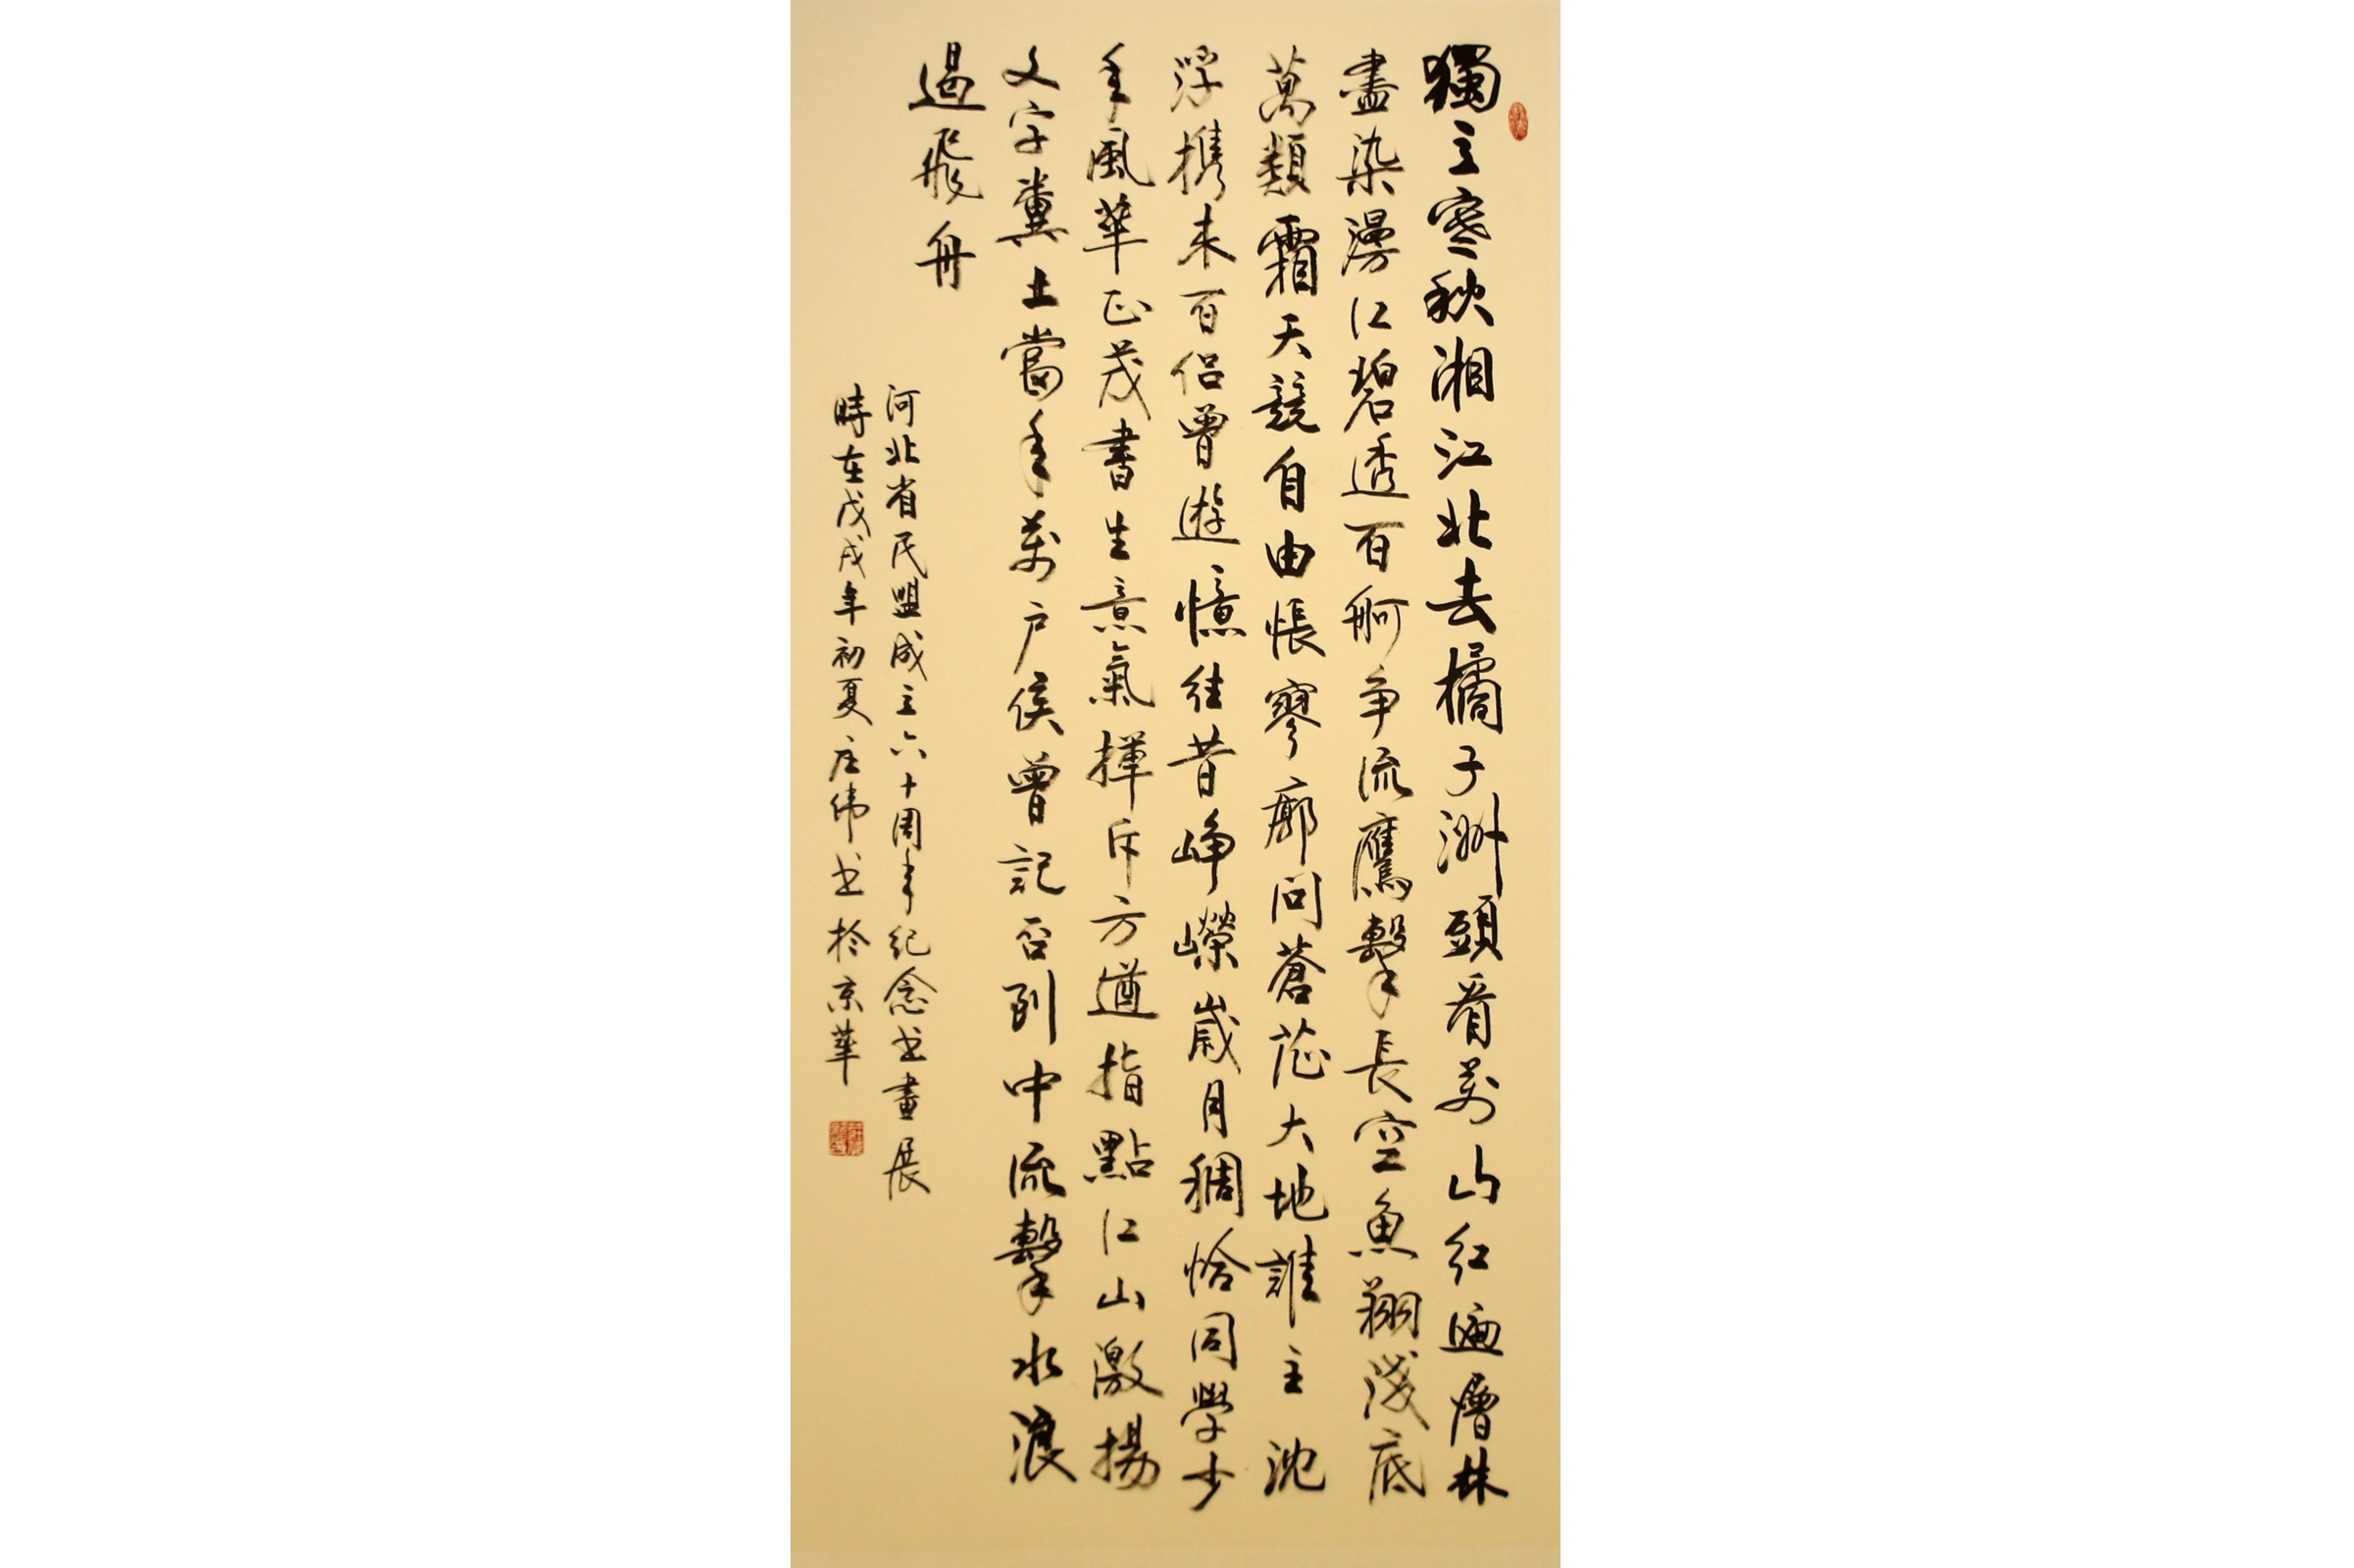 獨立寒秋湘江北去橘子洲頭看萬山紅遍層林
盡染漫江碧透百舸争流鷹擊長空魚翔淺底
萬類霜天競自由悵寥廓問蒼茫大地誰主沈
浮携来百侣曾遊憶往昔崢嶸歲月稠恰同學少
年風華正茂書生意氣揮斥方遒指點江山激揚
文字糞土當年萬户侯曾記否到中流擊水浪
遏飛舟
河北省民盟成立六十周年纪念书畫展
時在戊戌年初夏庄伟书於京華